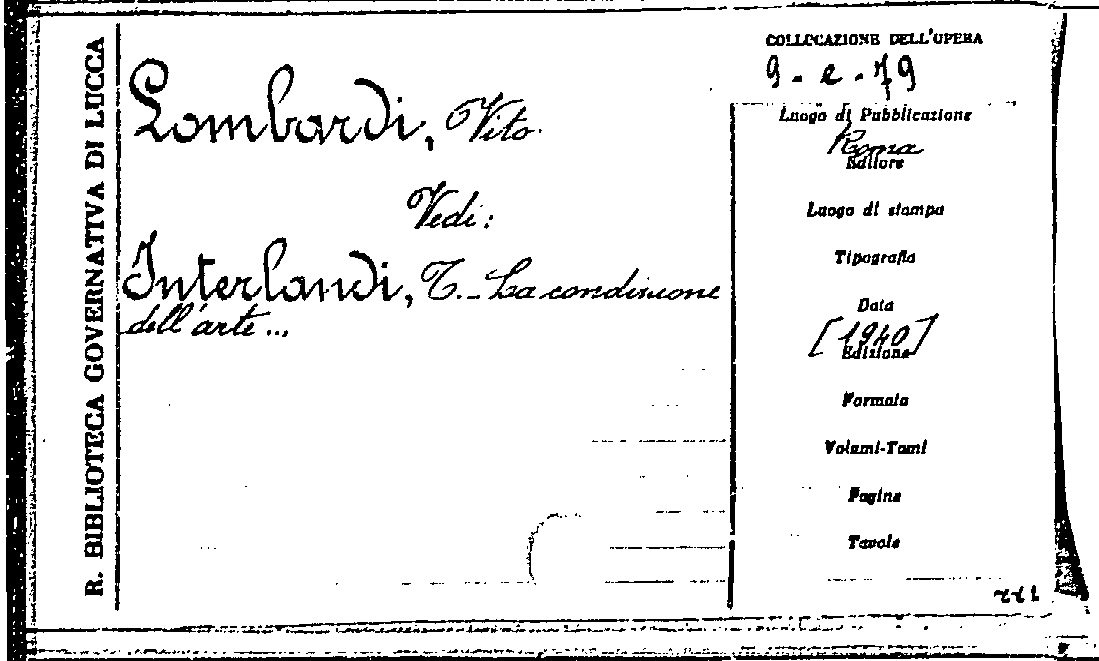 R. BIBLIOTECA GOVERNATIVA DI LUCCA
Lombardi, Vito.
Vedi:
Interlandi, T. - La condizione
dell'arte...
COLLOCAZIONE DELL'OPERA
9 - e - 79
Luogo di Pubblicazione
Roma
Editore
Luogo di stampa
Tipografia
Data
[1940]
Edizione
Formato
Volumi-Tomi
Pagine
Tavole